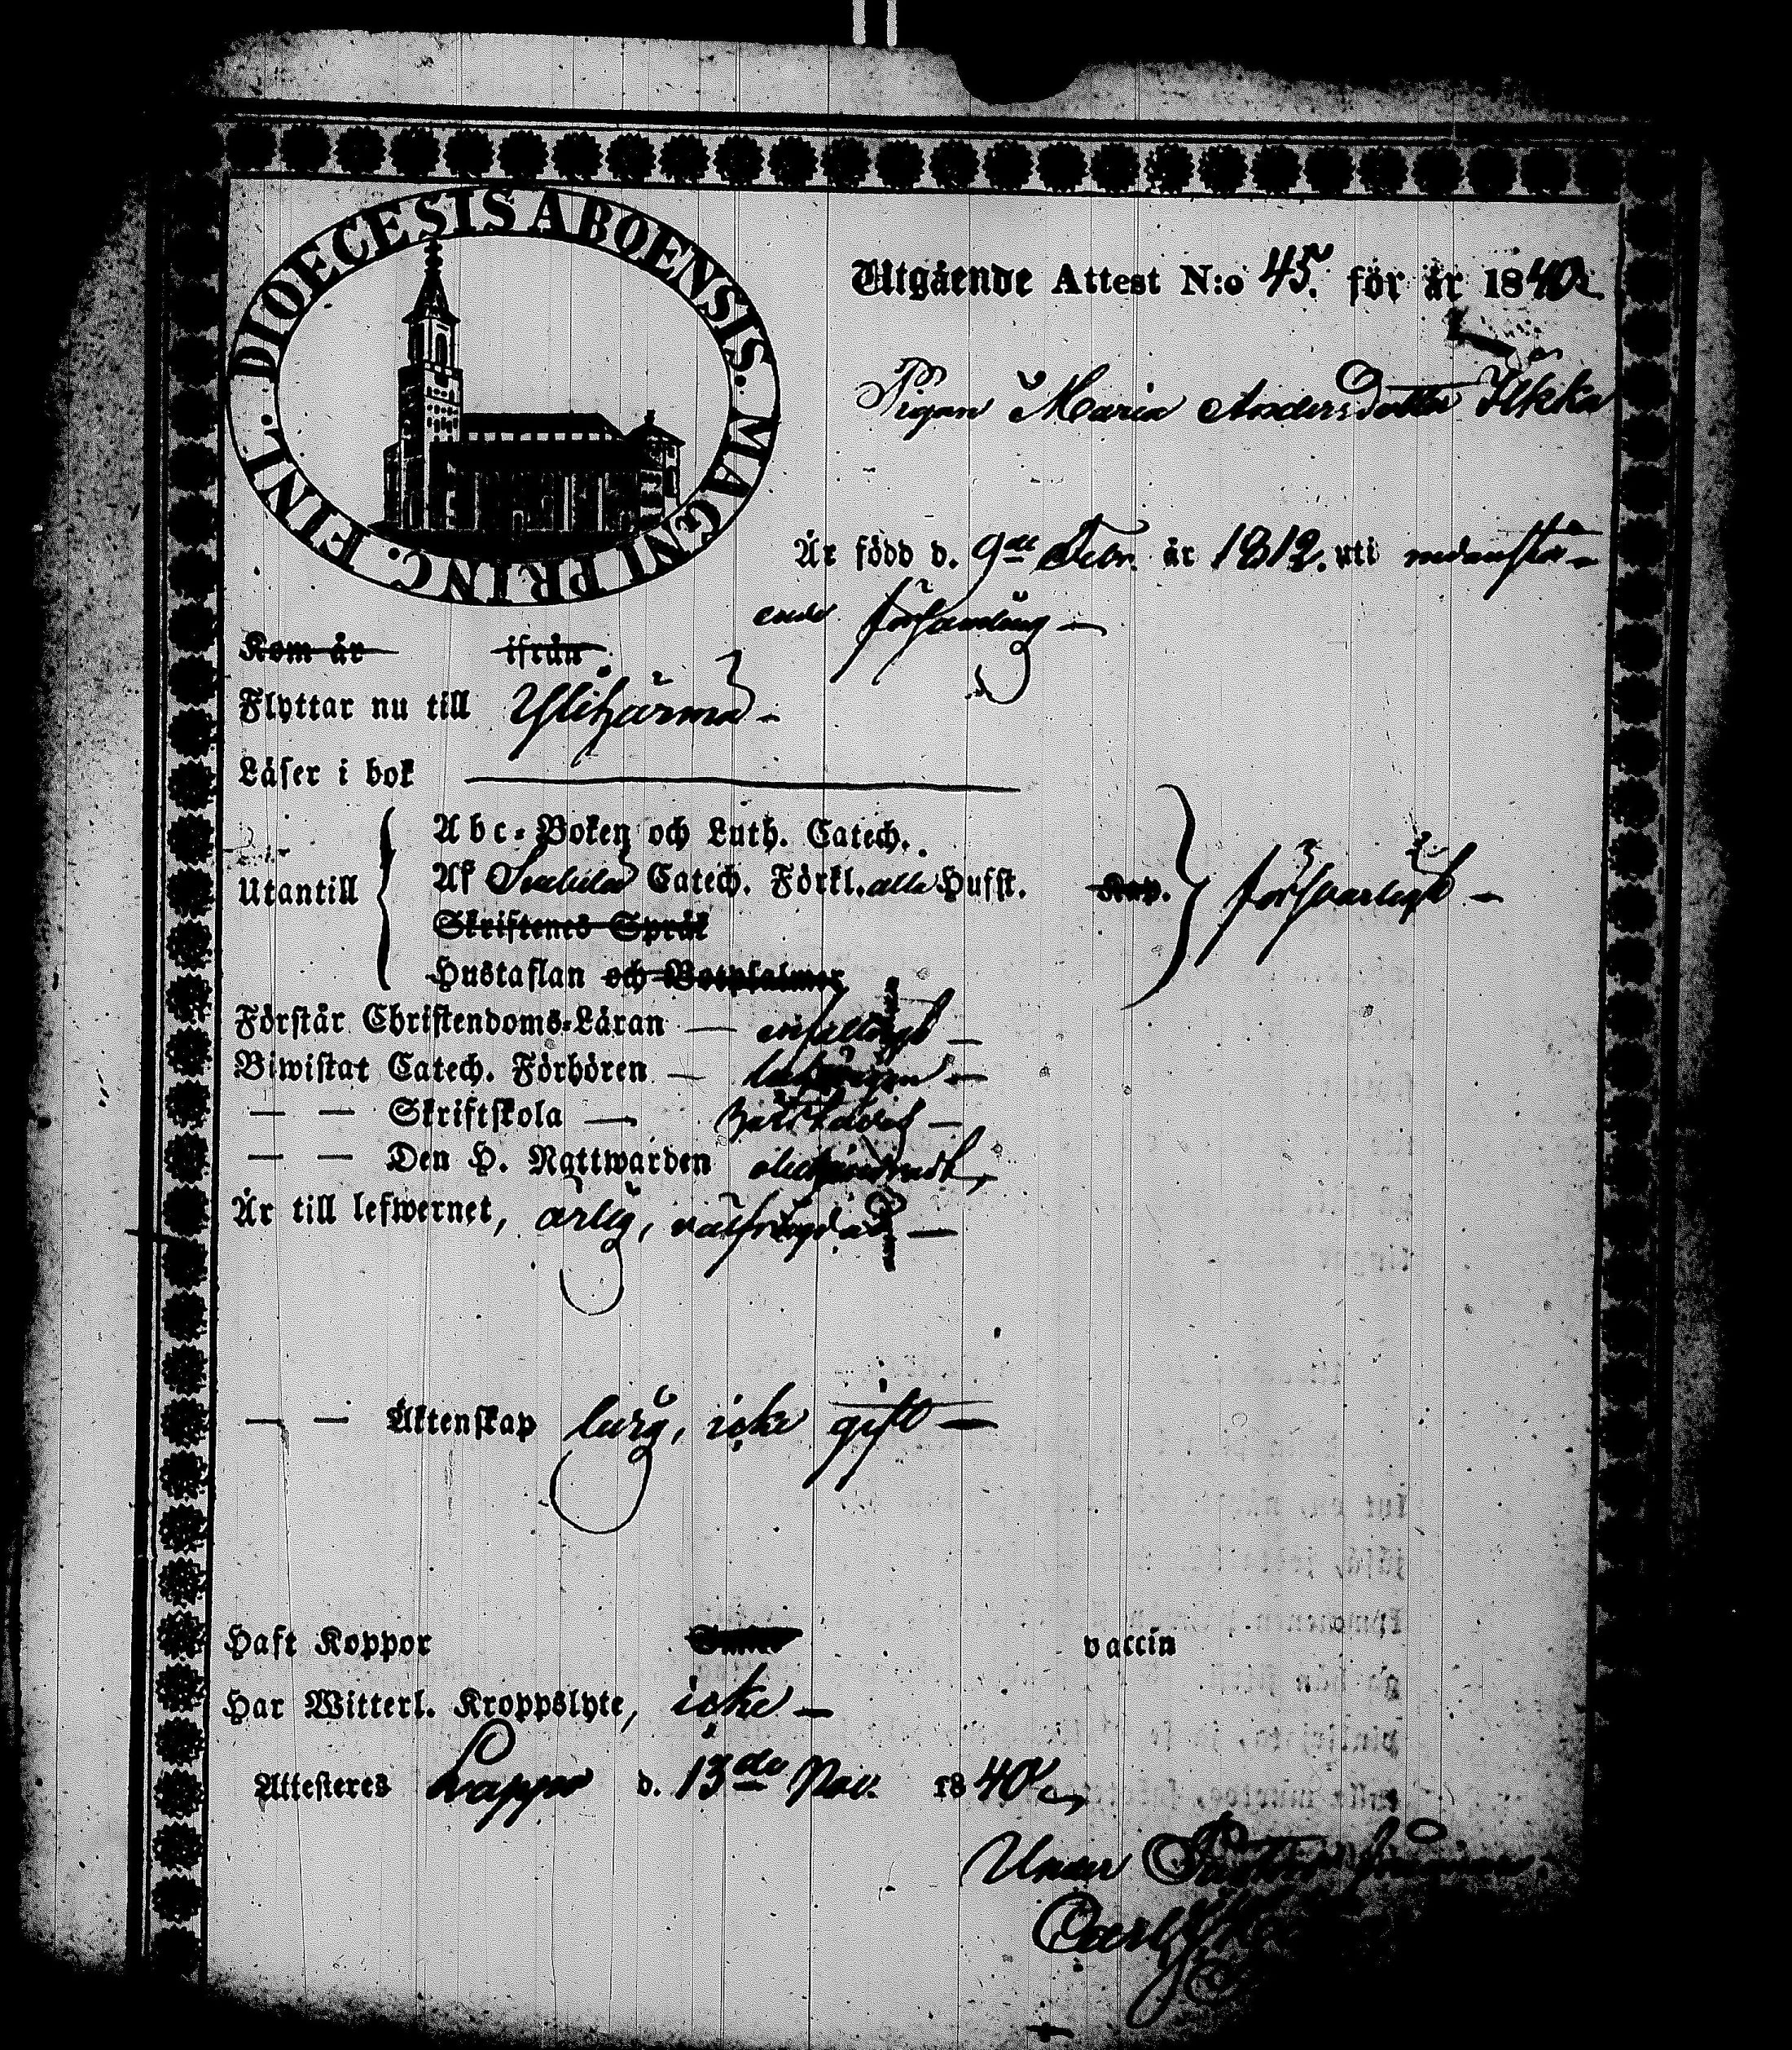 DIOECESIS ABOENSIS. MAGNI PRINC. FINL.
Utgående Attest N:o 45. för år 1840
Pigan Maria Andersdotter Ilkka
Är född d. 9de Febr. år 1812. uti nedanstå-
ende församling
Kom år ifrån
Flyttar nu till Ylihärmä
Läser i bok
Abc-Boken och Luth. Catech.
Utantill Af Svebilii Catech. Förkl. alla Hufst. Kap. försvarligt
Skriftenes Språk
Hustaflan och Botpsalmer
Förstår Christendoms-Läran — enfaldigt
Biwistat Catech. Förhören —
— — Skriftskola —
— — Den H. Nattwarden
Är till lefwernet, ärlig, välfrägdad —
— — Äktenskap ledig, icke gift —
Haft Koppor vaccin
Har Witterl. Kroppslyte, icke —
Attesteres Lappo d. 13de Nov. 1840
Under Pastors
Carl